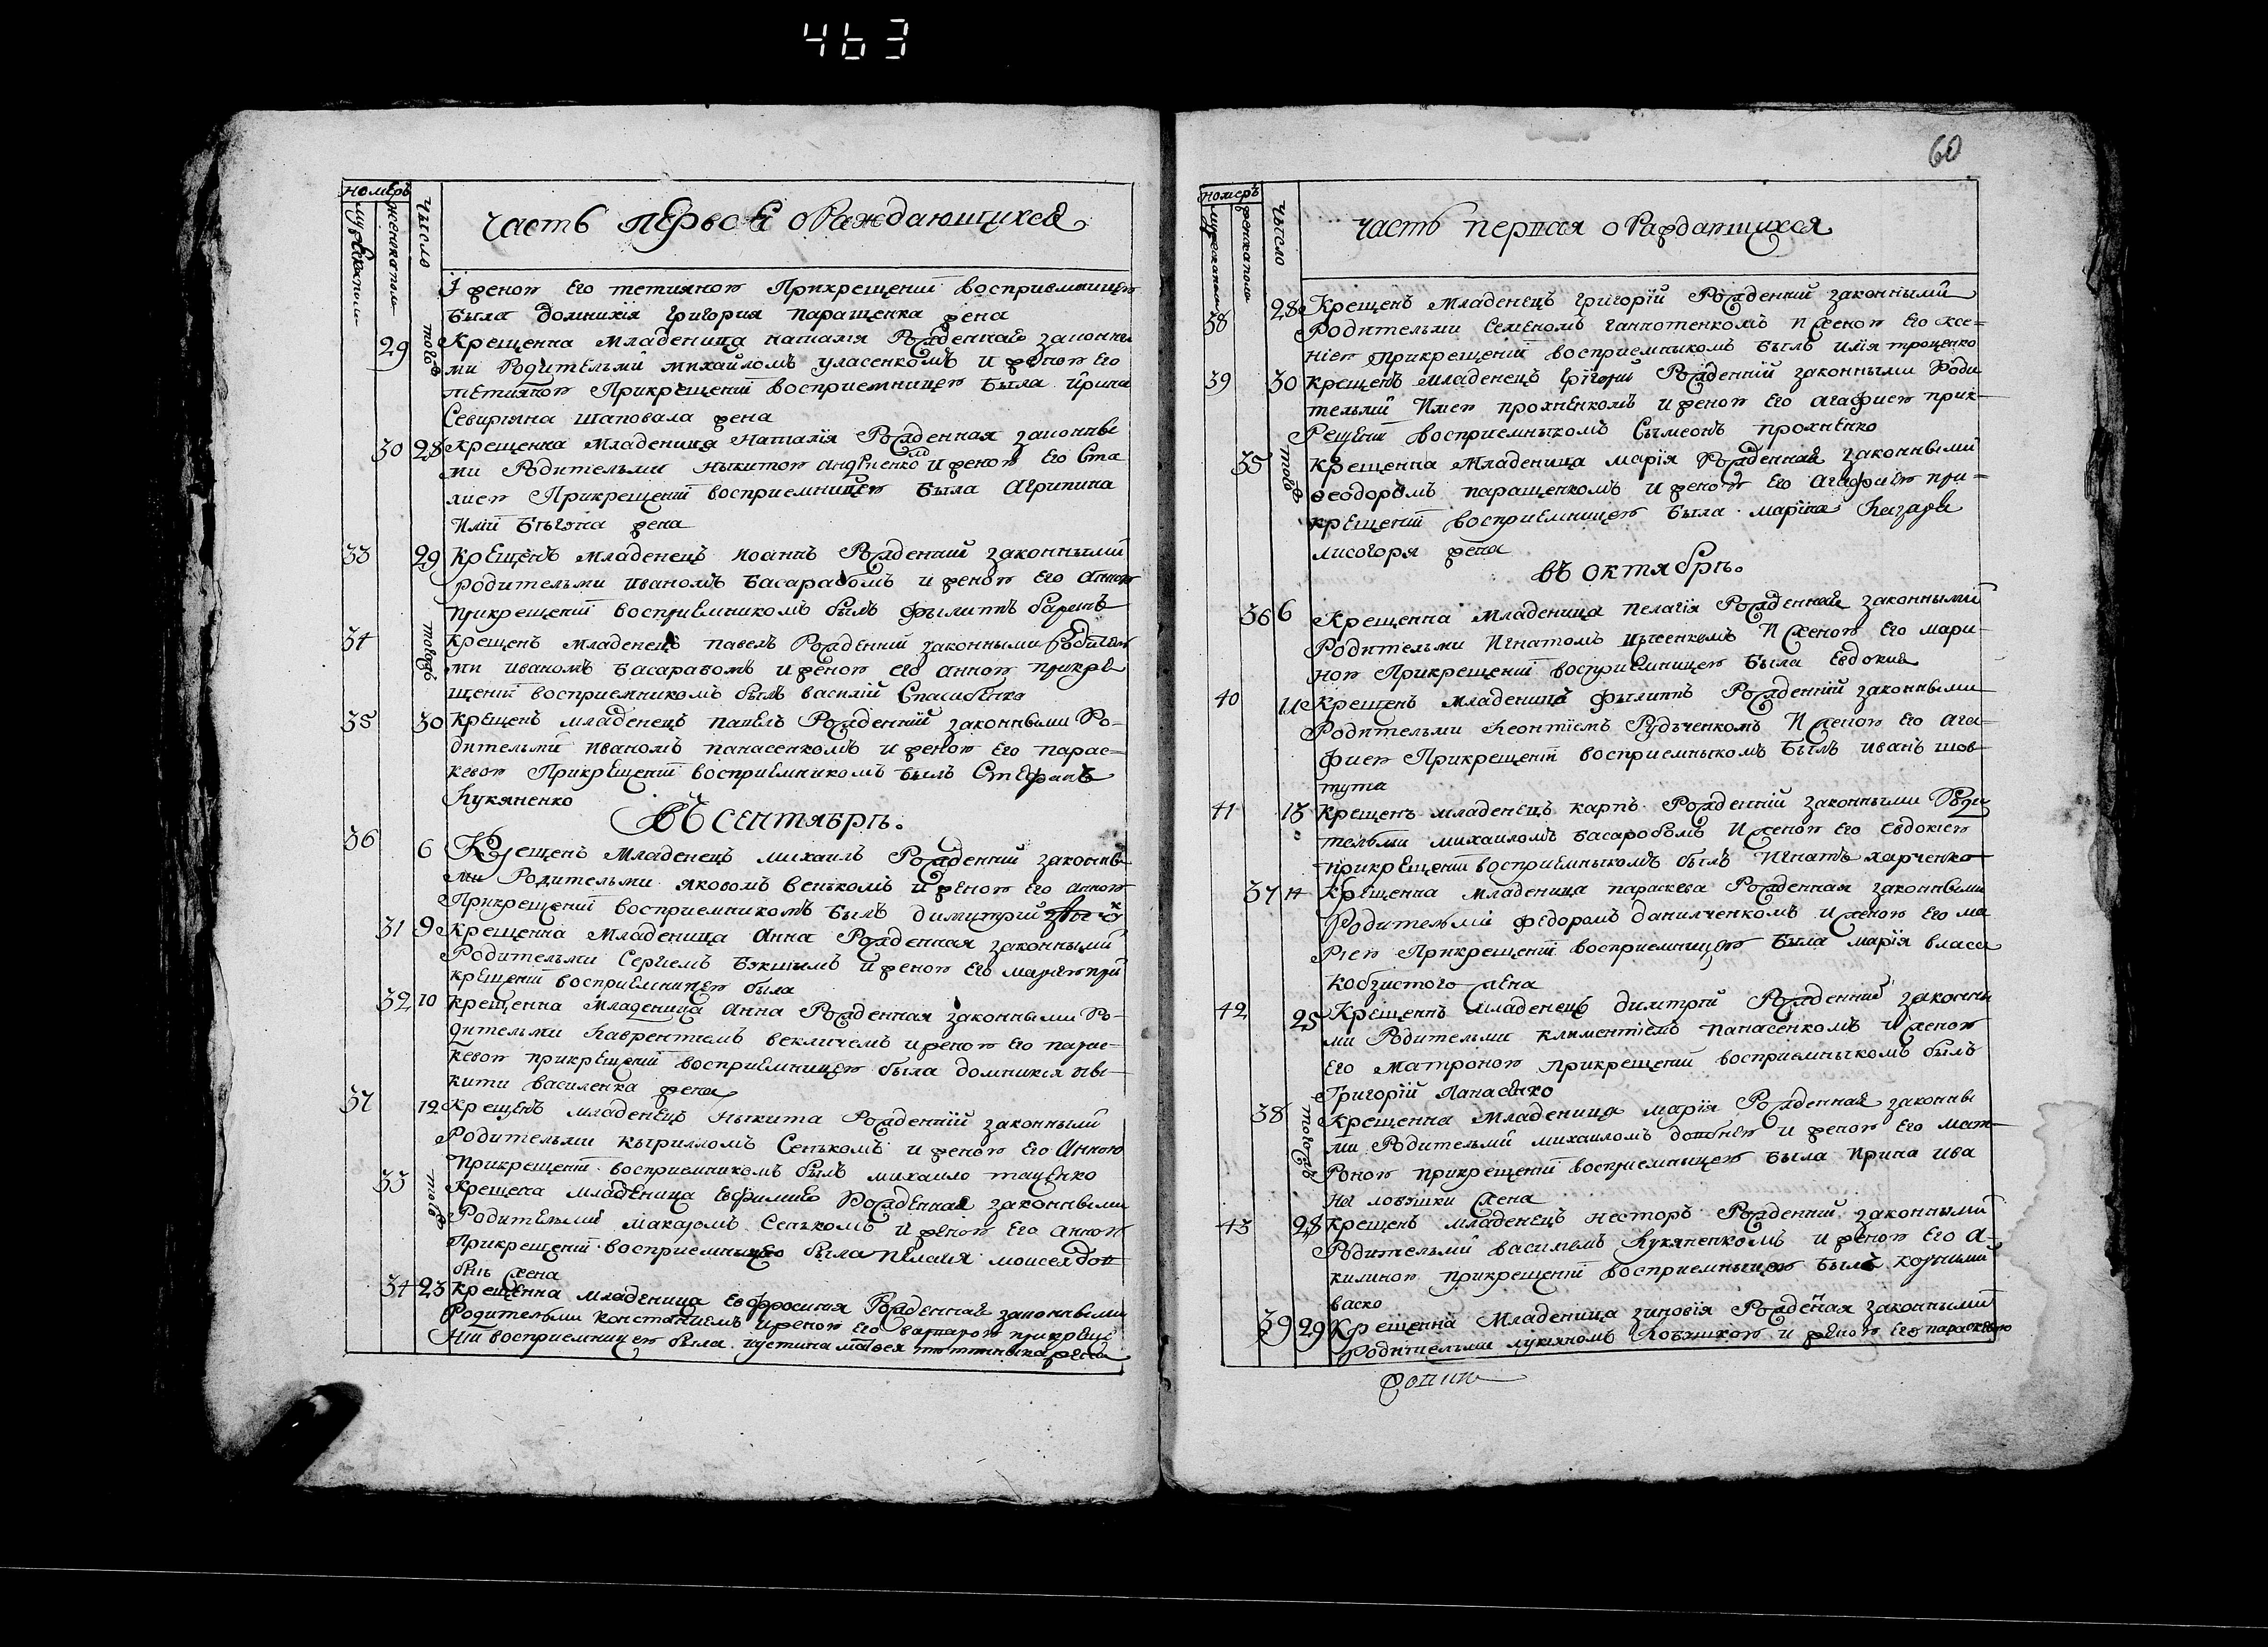 463
60
номеръ
мужеска пола
женска пола
число
часть первая о Раждающихся
і женою Его тетияною Прикрещеніи восприемницею
была домникія григория паращенка жена
29 того
Крещенна младеница наталія Рожденная законны
ми Родительми михайломъ уласенкомъ и женою Его
тетияною Прикрещеніи восприемницею была ирина
Севирияна шаповала жена
30 28 Крещенна младеница Наталія Рожденная законны
ми Родительми никитою и женою Его Ста
лиею Прикрещеніи восприемницею была Агрипина
Иліи жена
33 29 Крещенъ младенецъ иоаннъ Рожденній законными
родительми иваномъ басарабомъ и женою Его Анною
прикрещеніи восприемникомъ былъ филиппъ
34 тогожъ Крещенъ младенецъ павелъ Рожденній законными Родител
ми иваномъ басарабомъ и женою его анною прикре
щеніи восприемникомъ былъ василій Спасибенко
35 30 Крещенъ младенецъ павелъ Рожденній законными Ро-
дительми иваномъ панасенкомъ и женою Его парас-
кевою Прикрещеніи восприемникомъ былъ Стефанъ
Лукяненко
Въ сентябрѣ.
36 6 Крещенъ младенецъ михаилъ Рожденній законны
ми Родительми яковомъ венькомъ и женою Его анною
Прикрещеніи восприемникомъ былъ димитрий
31 9 Крещенна младеница Анна Рожденная законными
Родительми Сергіемъ и женою Его при
крещеніи восприемницею была
32 10 Крещенна младеница Анна Рожденная законными Ро-
дительми Лаврентіемъ векличемъ и женою Его парас-
кевою прикрещеніи восприемницею была домникія ны-
кити василенка жена
37 12 Крещенъ младенецъ Ныкита Рожденній законными
Родительми кырилломъ Сенькомъ и женою Его Анною
Прикрещеніи восприемникомъ былъ михаило таценко
33 того Крещена младеница Евфимия Рожденная законными
Родительми макаромъ Сенькомъ и женою Его анною
Прикрещеніи восприемницею была Пелагия моисея дов
бнѣ жена
34 23 Крещенна младеница Евфросиния Рожденная законными
Родительми и женою Его варварою прикреще
ніи восприемницею была иустина матвея жена
номеръ
мужеска пола
женска пола
число
часть первая о Раждающихся
38 28 Крещенъ младенецъ григорій Рожденній законными
Родительми Семеномъ и женою Его ксе-
ніею прикрещеніи восприемныкомъ былъ илія троценко
39 30 Крещенъ младенецъ григорій Рожденній законными Роди
тельми Илиею прохненкомъ и женою Его агафиею прик-
рещеніи восприемныкомъ Сымеонъ прохненко
35 того Крещенна младеница марія Рожденная законными
феодоромъ паращенкомъ и женою Его Агафиею при-
крещеніи восприемницею была марина Лазаря
лисогоря жена
въ октябрѣ.
36 6 Крещенна младеница Пелагія Рожденная законными
Родительми Игнатомъ и женою Его мари-
ною Прикрещеніи восприемницею была Евдокия
40 11 Крещенъ младеницъ филиппъ Рожденній законными
Родительми Леонтіемъ Рудьченкомъ и женою Его ага-
фиею Прикрещеніи восприемныкомъ былъ иванъ шов-
тута
41 13 Крещенъ младенецъ карпъ Рожденній законными Роди
тельми михаиломъ басарабомъ и женою Его Евдокіею
прикрещеніи восприемныкомъ былъ Игнатъ харченко
37 14 Крещенна младеница параскева Рожденная законными
Родительми федоромъ данилченкомъ и женою Его ма
риею Прикрещеніи восприемницею была марія власа
кобзистого жена
42 25 Крещенъ младенецъ димитрій Рожденній законны
ми Родительми климентіемъ панасенкомъ и женою
Его матроною прикрещеніи восприемныкомъ былъ
Григорій Панасенко
38 тогожъ Крещенна младеница марія Рожденная законны
ми Родительми михаиломъ довбнею и женою Его мат-
роною прикрещеніи восприемницею была Ирина ива
на жена
43 28 Крещенъ младенецъ несторъ Рожденній законными
Родительми василемъ Лукяненкомъ и женою Его а-
килиною прикрещеніи восприемныцею былъ корнилій
васко
39 29 Крещенна младеница зиновія Рожденая законными
Родительми лукяномъ и женою Его параскевою